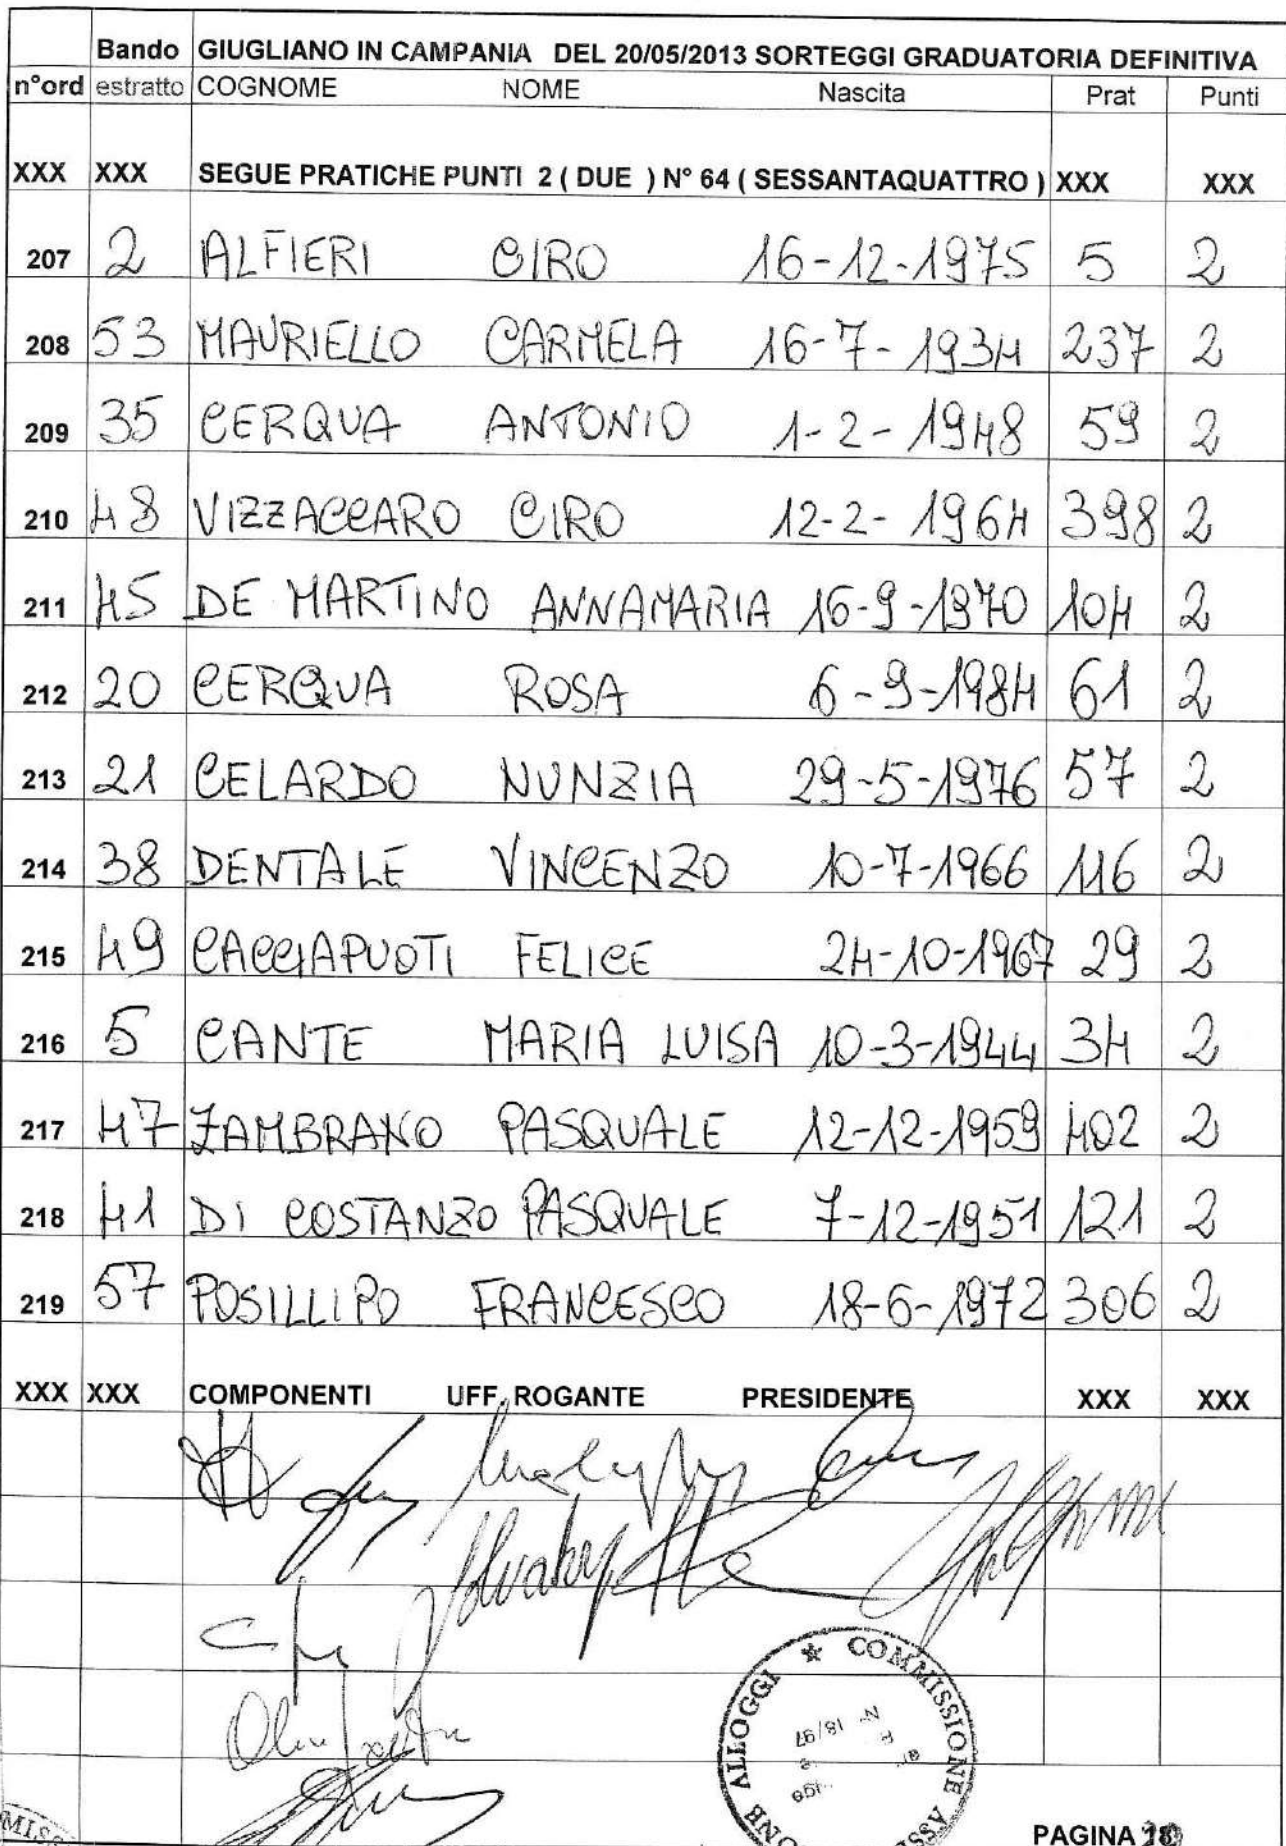 Bando GIUGLIANO IN CAMPANIA DEL 20/05/2013 SORTEGGI GRADUATORIA DEFINITIVA
n°ord estratto COGNOME NOME Nascita Prat Punti
XXX XXX SEGUE PRATICHE PUNTI 2 ( DUE ) N° 64 ( SESSANTAQUATTRO ) XXX XXX
207 2 ALFIERI CIRO 16-12-1975 5 2
208 53 MAURIELLO CARMELA 16-7-1934 237 2
209 35 CERQUA ANTONIO 1-2-1948 59 2
210 48 VIZZACCARO CIRO 12-2-1964 398 2
211 45 DE MARTINO ANNAMARIA 16-9-1970 104 2
212 20 CERQUA ROSA 6-9-1984 61 2
213 21 CELARDO NUNZIA 29-5-1976 57 2
214 38 DENTALE VINCENZO 10-7-1966 116 2
215 49 CACCIAPUOTI FELICE 24-10-1967 29 2
216 5 CANTE MARIA LUISA 10-3-1944 34 2
217 47 ZAMBRANO PASQUALE 12-12-1959 402 2
218 41 DI COSTANZO PASQUALE 7-12-1951 121 2
219 57 POSILLIPO FRANCESCO 18-6-1972 306 2
XXX XXX COMPONENTI UFF. ROGANTE PRESIDENTE XXX XXX
ALLOGGI * COMMISSIONE ASS
N. 18/97
PAGINA